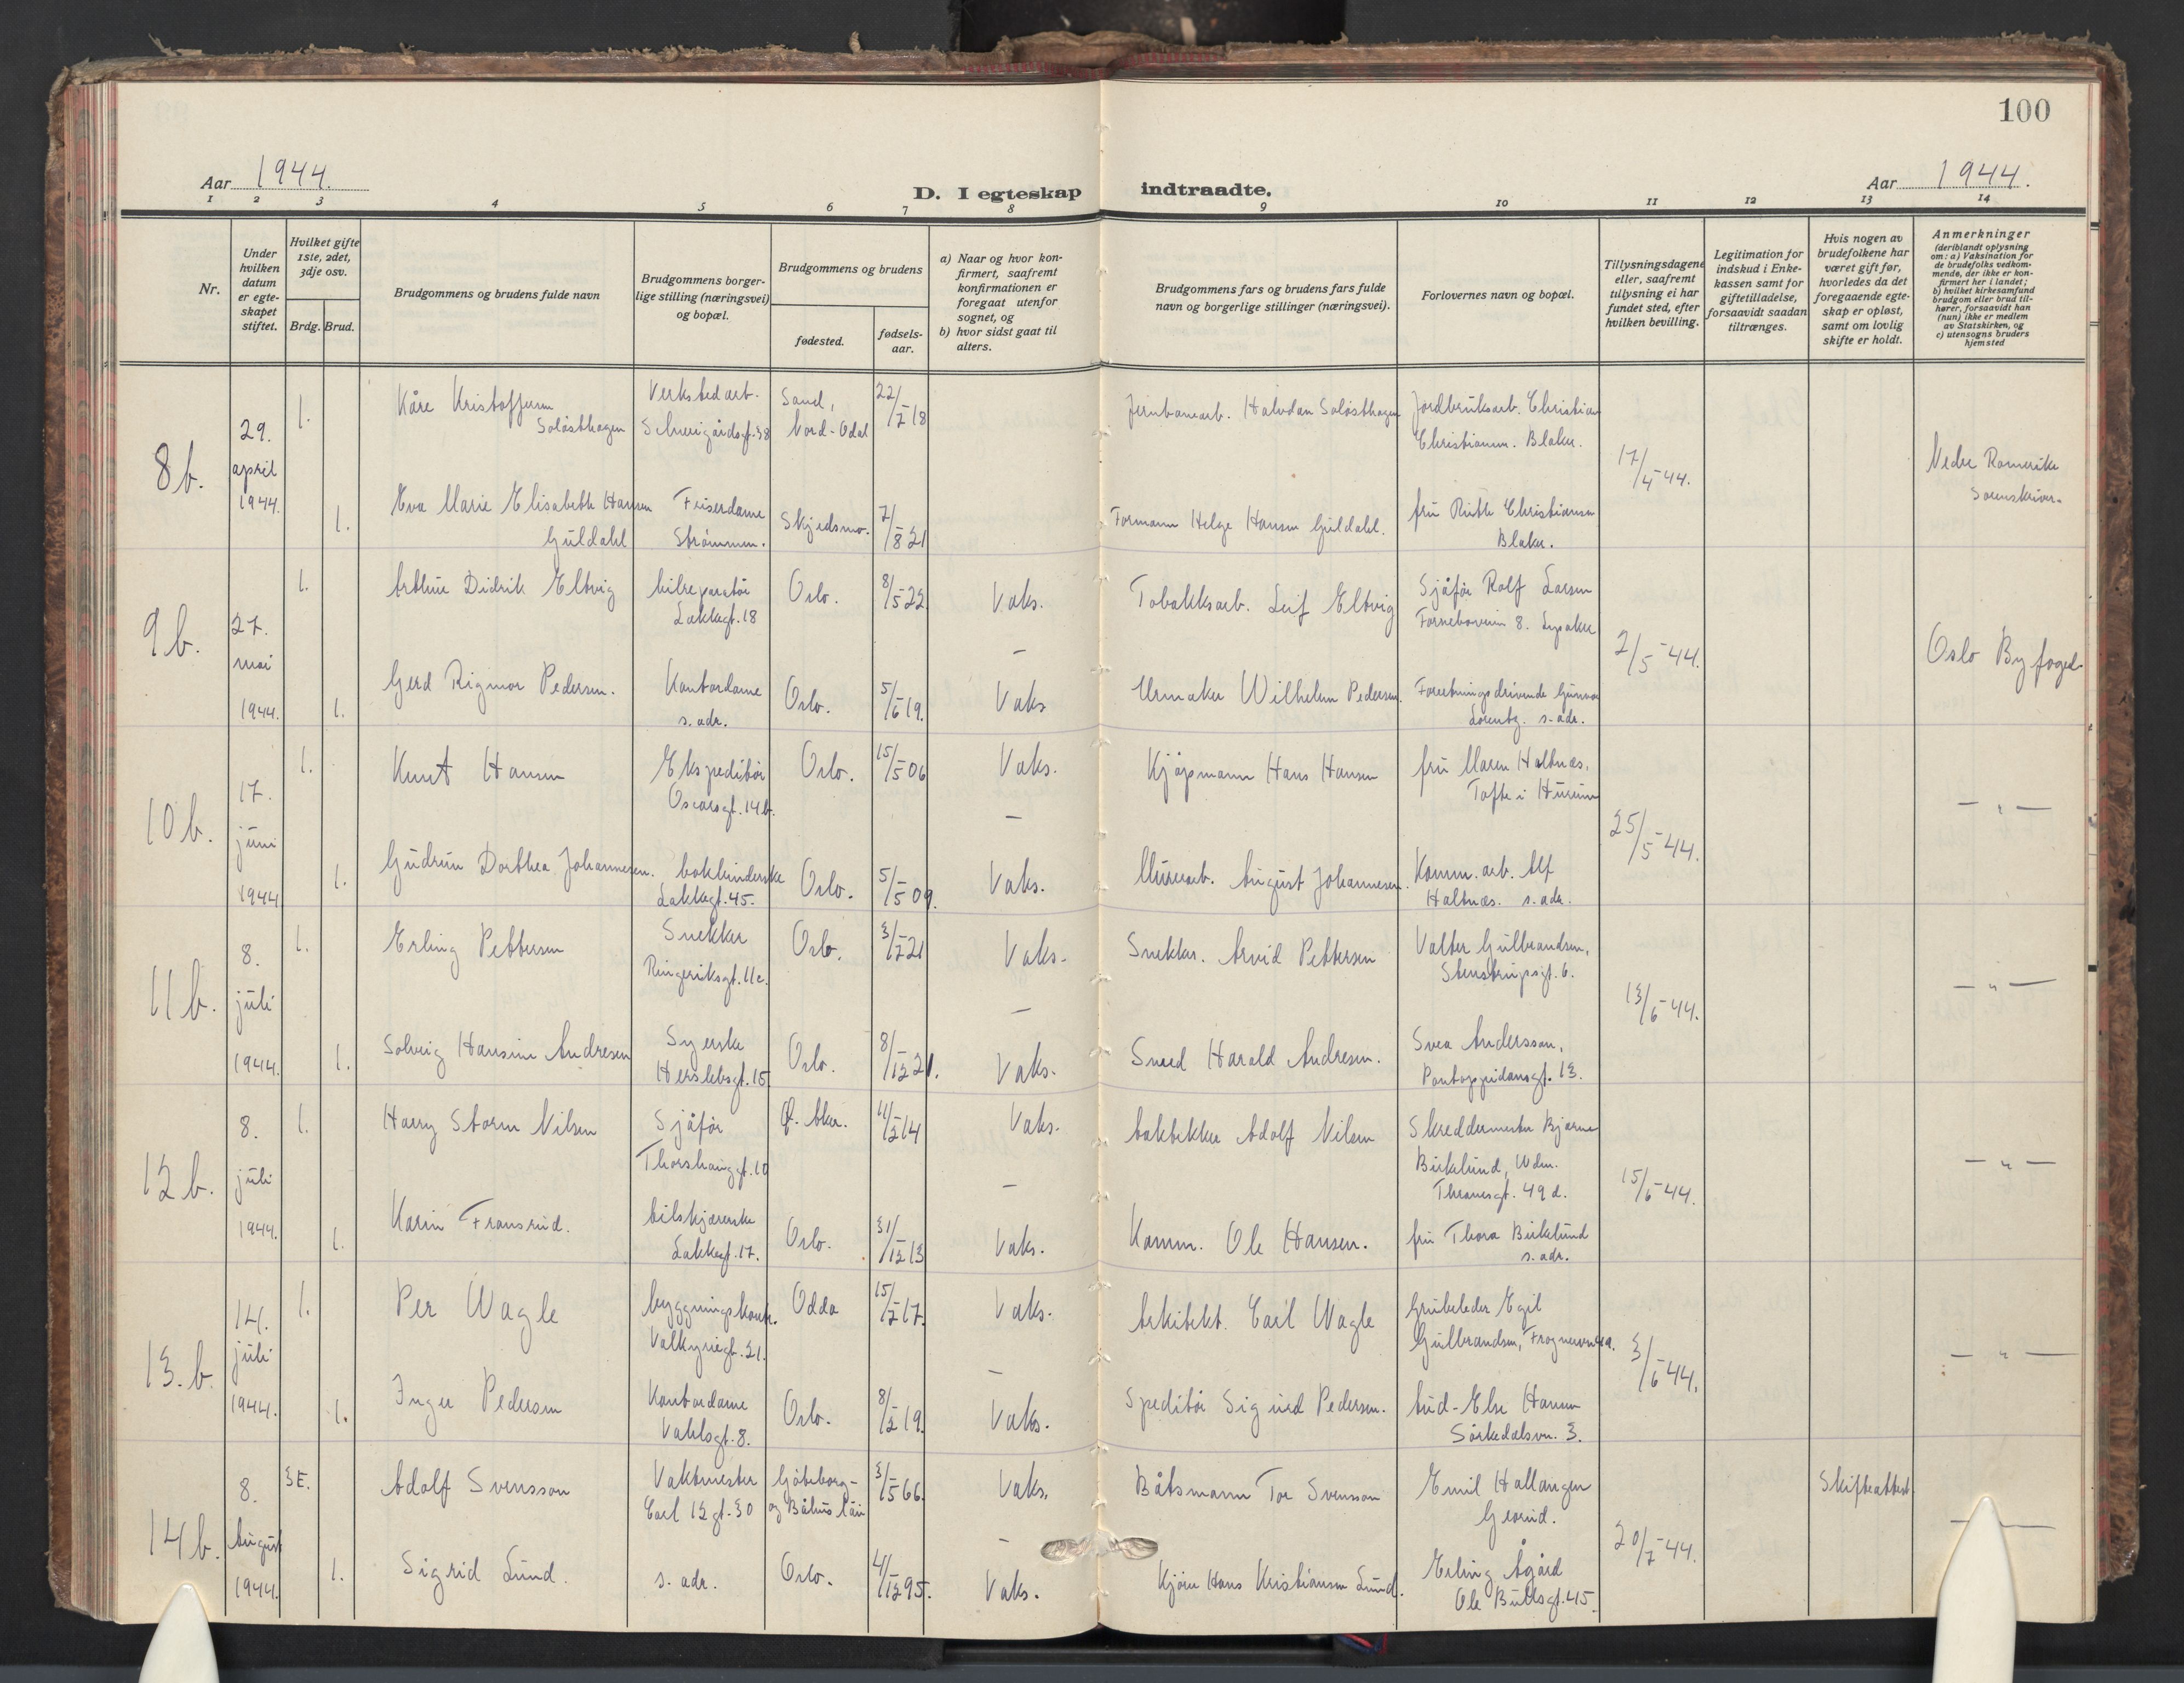 100
Aar 1944.
D. I egteskap indtraadte.
Aar 1944.
1 2 3 4 5 6 7 8 9 10 11 12 13 14
Nr.
Under hvilken datum er egteskapet stiftet.
Hvilket gifte 1ste, 2det, 3dje osv.
Brdg. Brud.
Brudgommens og brudens fulde navn
Brudgommens borgerlige stilling (næringsvei) og bopæl.
Brudgommens og brudens
fødested.
fødselsaar.
a) Naar og hvor konfirmert, saafremt konfirmationen er foregaat utenfor sognet, og
b) hvor sidst gaat til alters.
Brudgommens fars og brudens fars fulde navn og borgerlige stillinger (næringsvei).
Forlovernes navn og bopæl.
Tillysningsdagene eller, saafremt tillysning ei har fundet sted, efter hvilken bevilling.
Legitimation for indskud i Enkekassen samt for giftetilladelse, forsaavidt saadan tiltrænges.
Hvis nogen av brudefolkene har været gift før, hvorledes da det foregaaende egteskap er opløst, samt om lovlig skifte er holdt.
Anmerkninger
(deriblandt oplysning om: a) Vaksination for de brudefolks vedkommende, der ikke er konfirmert her i landet; b) hvilket kirkesamfund brudgom eller brud tilhører, forsaavidt han (hun) ikke er medlem av Statskirken, og c) utensogns bruders hjemsted
8b. 29. april 1944.
1. Kåre Kristoffersen Soløsthagen
Verkstedarb. Schweigårdsgt. 38
Sand, Nord-Odal
22/7-18
Jernbanearb. Halvdan Soløsthagen
Jordbruksarb. Christian Christiansen. Blaker.
17/4-44.
Nedre Romerike Sorenskriver.
1. Eva Marie Elisabeth Hansen Guldahl
Friserdame Strømmen.
Skjedsmo.
7/8-21
Formann Helge Hansen Guldahl.
fru Ruth Christiansen Blaker.
9b. 27. mai 1944.
1. Arthur Didrik Eltvig
bilreparatør Lakkegt. 18
Oslo.
8/5-22.
Vaks.
Tobakksarb. Leif Eltvig
Sjåfør Rolf Larsen Fornebovein 8. Lysaker
2/5-44.
Oslo Byfoged
1. Gerd Rigmor Pedersen.
Kontordame s. adr.
Oslo.
5/6-19.
Vaks
Urmaker Wilhelm Pedersen.
Forretningsdrivende Gunnar Lorentz. s. adr.
10b. 17. juni 1944
1. Knut Hansen
Ekspeditør Oscarsgt. 14b.
Oslo.
15/5-06
Vaks.
Kjøpmann Hans Hansen
fru Maren Haltnæs, Tofte i Hurum
25/5-44.
— " —
1. Gudrun Dorthea Johannesen.
bokbinderske Lakkegt. 45.
Oslo.
5/5-09.
Vaks.
Murerarb. August Johannesen.
Komm. arb. Alf Haltnæs. s. adr.
11b. 8. juli 1944.
1. Erling Pettersen
Snekker Ringeriksgt. 11c.
Oslo.
3/7-21
Vaks.
Snekker. Arvid Pettersen
Valter Gulbrandsen, Stenstrupsgt. 6.
13/6-44.
— " —
1. Solveig Hansine Andresen
Syerske Herslebsgt. 15
Oslo.
8/12-21.
Vaks.
Smed Harald Andresen.
Svea Andersson, Pontoppidansgt. 13.
12b. 8. juli 1944.
1. Harry Storm Nilsen
Sjåfør Thorshauggt. 10
Ø. Aker.
11/2-14
Vaks.
Taktekker Adolf Nilsen
Skreddermester Bjarne Birkelund, Wdm. Thranesgt. 49d.
15/6-44.
— " —
1. Karin Fransrud.
tilskjærerske Lakkegt. 17.
Oslo.
31/12-13
Vaks.
Komm. Ole Hansen.
fru Thora Birkelund s. adr.
13.b. 14. juli 1944.
1. Per Wagle
byggningskontr. Valkyriegt. 21.
Odda
15/7-17.
Vaks.
Arkitekt. Carl Wagle
Grubeleder Egil Gulbrandsen,
3/6-44.
— " —
1. Inger Pedersen
Kontordame Vahlsgt. 8.
Oslo.
8/2-19.
Vaks.
Speditør Sigurd Pedersen.
Aud-Else Hansen Sørkedalsvn. 3.
14b. 8. August 1944.
3E. Adolf Svensson
Vaktmester Carl 12 gt. 30
Gøteborg- og Båhus län
3/5-66.
Vaks.
Båtsmann Tor Svensson
Emil Hallangen
20/7-44.
Skifteattest
1. Sigrid Lund.
s. adr.
Oslo.
4/12-95.
Vaks.
Kjører Hans Kristiansen Lund.
Erling Ågård Ole Bullsgt. 45.